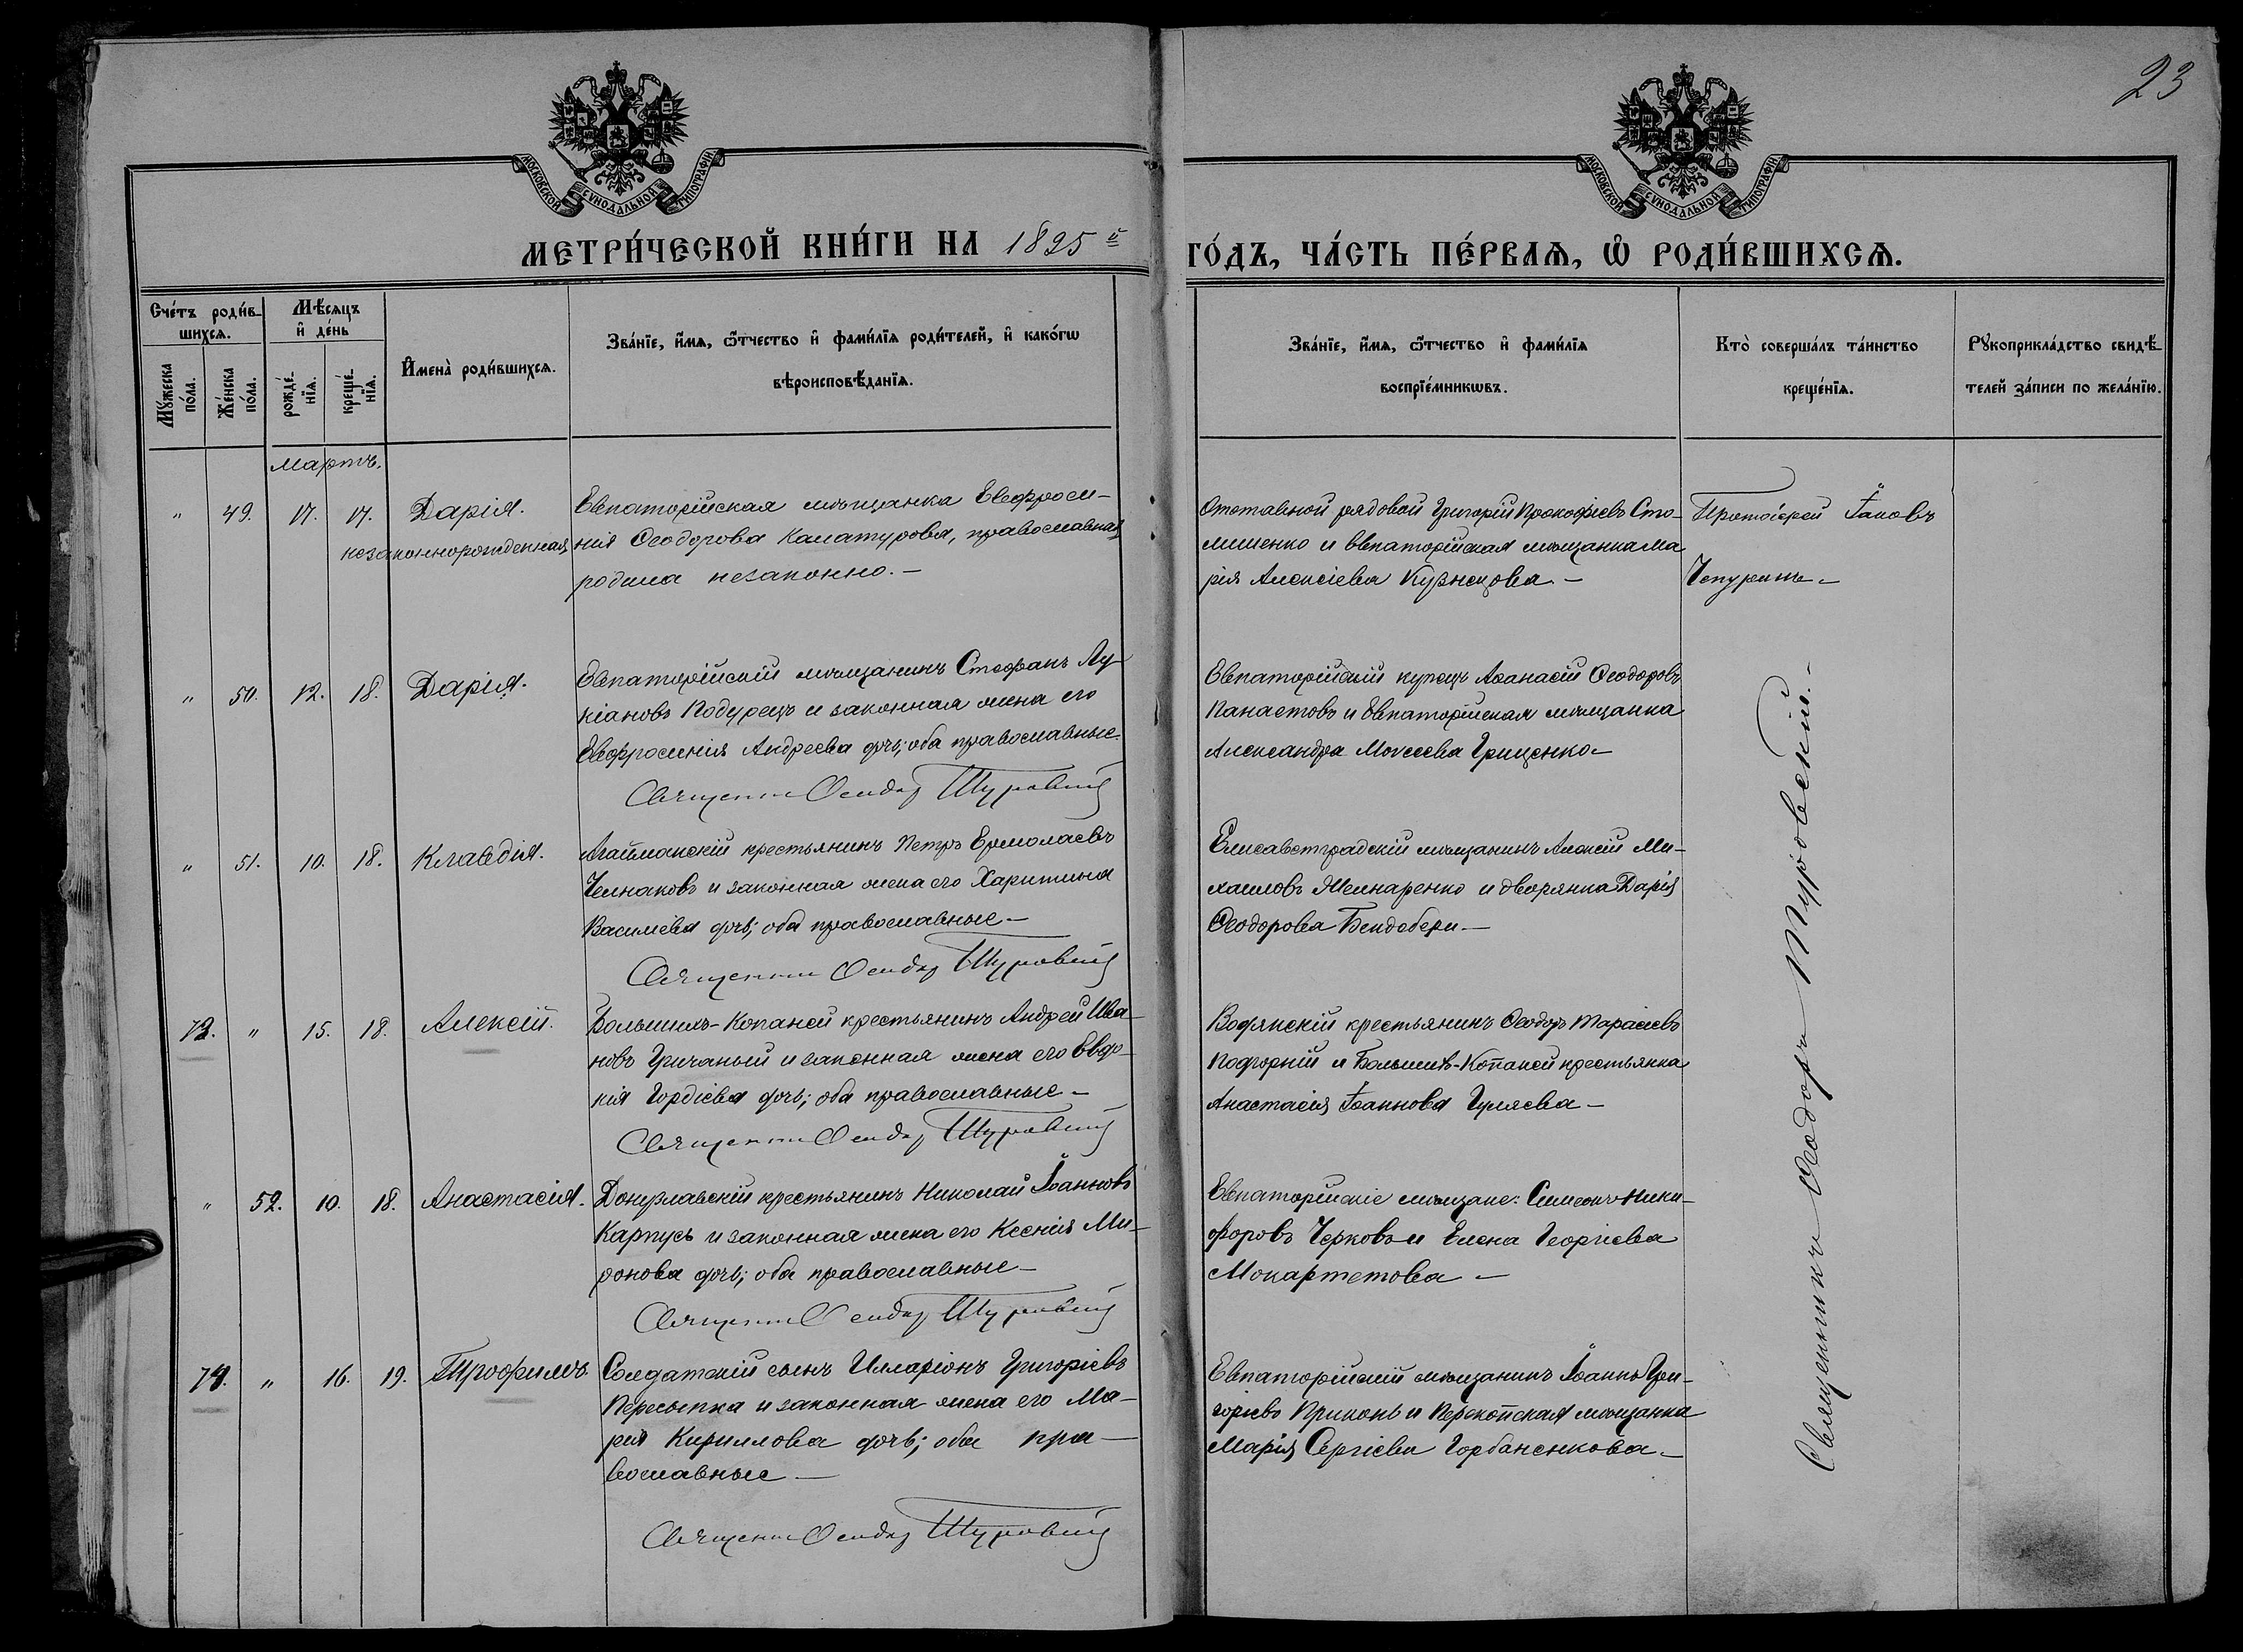 23
МОСКОВСКОЙ СѴНОДАЛЬНОЙ ТИПОГРАФІИ
МОСКОВСКОЙ СѴНОДАЛЬНОЙ ТИПОГРАФІИ
МЕТРИ́ЧЕСКОЙ КНИ́ГИ НА 1895 й
ГО́ДЪ, ЧА́СТЬ ПЕ́РВАѦ, Ѡ РОДИ́ВШИХСѦ.
Сче́тъ роди́в-
шихсѧ.
Мѣ́сяцъ
и҆ де́нь
Мꙋжеска
по́ла.
Же́нска
по́ла.
рожде́-
нїѧ.
креще́-
нїѧ.
И҆мена̀ роди́вшихсѧ.
Зва́нїе, и҆́мѧ, ѻ҆́тчество и҆ фами́лїѧ роди́телей, и҆ како́гѡ
вѣроисповѣ́данїѧ.
Зва́нїе, и҆́мѧ, ѻ҆́тчество и҆ фами́лїѧ
воспрїе́мникѡвъ.
Кто̀ соверша́лъ та́инство
креще́нїѧ.
Рꙋкоприкла́дство свидѣ́-
телей за́писи по жела́нїю.
Мартъ.
" 49. 17. 17. Дарія.
незаконнорожденная
Евпаторійская мѣщанка Евфроси-
нія Ѳеодорова Каматурова, православная
родила незаконно.-
Отставной рядовой Григорій Прокофіевъ Сто-
лишенко и Евпаторійская мѣщанка Ма
рія Алексіева Кузнецова.-
Протоіерей Іаковъ
Чепуринъ-
" 50. 12. 18. Дарія.
Евпаторійскій мѣщанинъ Стефанъ Лу-
кіановъ Подурецъ и законная жена его
Евфросинія Андреева дочь; оба православные.
Священни Ѳеодор Туровскій
Евпаторійскій купецъ Аѳанасій Ѳеодоровъ
Панаетовъ и Евпаторійская мѣщанка
Александра Моисеева Гриценко-
" 51. 10. 18. Клавдія.
Агайманскій крестьянинъ Петръ Ермолаевъ
Челнаковъ и законная жена его Харитина
Василева дочь; оба православные-
Священни Ѳеодор Туровскій
Елисаветградскій мѣщанинъ Алексій Ми-
хаиловъ Мелнаренко и дворянка Дарія
Ѳеодорова Бендебери.-
73. " 15. 18. Алексій.
Большихъ-Копаней крестьянинъ Андрей Ива-
новъ Гричаный и законная жена его Евдо-
кія Гордіева дочь; оба православные-
Священни Ѳеодор Туровскій
Водянскій крестьянинъ Ѳеодоръ Тарасіевъ
Подгорній и Большихъ-Копаней крестьянка
Анастасія Іоаннова Гуляева-
" 52. 10. 18. Анастасія.
Донузлавскій крестьянинъ Николай Іоанновъ
Карпусь и законная жена его Ксенія Ми-
ронова дочь; оба православные-
Священни Ѳеодор Туровскій
Евпаторійскіе мѣщане: Симеонъ Ники-
форовъ Черковъ и Елена Георгіева
Мокартетова-
74. " 16. 19. Трофимъ.
Солдатскій сынъ Илларіонъ Григоріевъ
Пересыпка и законная жена его Ма-
рія Кириллова дочь; оба пра-
вославные-
Священни Ѳеодор Туровскій
Евпаторійскій мѣщанинъ Іоаннъ Гри-
горіевъ и Перекопская мѣщанка
Марія Сергіева Горбаненкова-
Священникъ Ѳеодоръ Туровскій.-